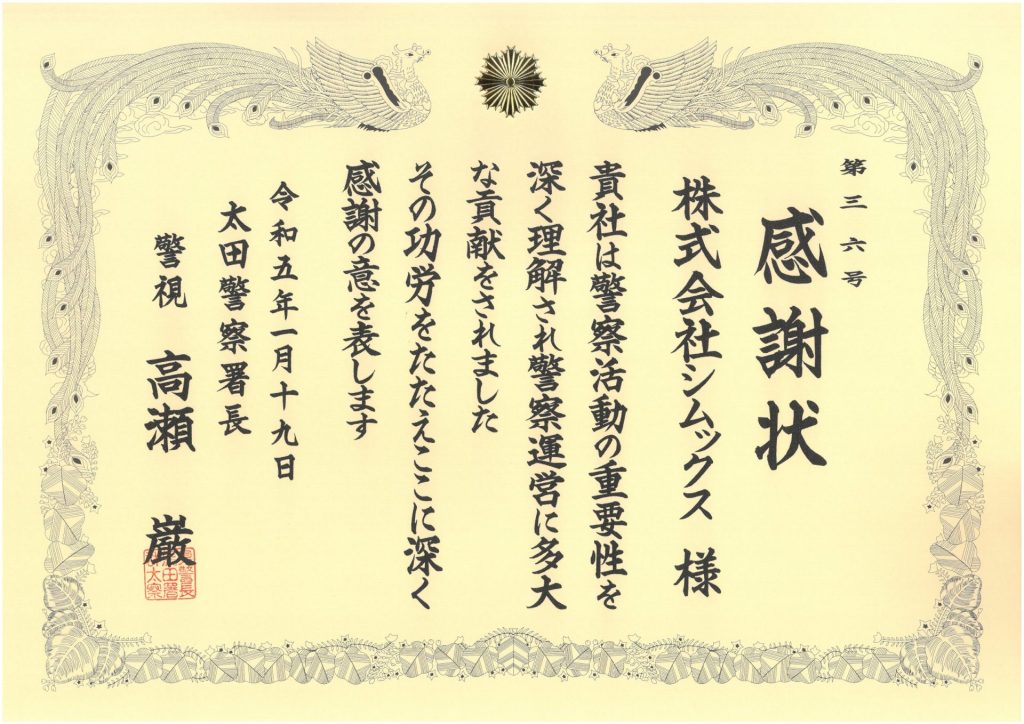 第三六号
感謝状
株式会社シムックス 様
貴社は警察活動の重要性を
深く理解され警察運営に多大
な貢献をされました
その功労をたたえここに深く
感謝の意を表します
令和五年一月十九日
太田警察署長
警視 高瀬 巌